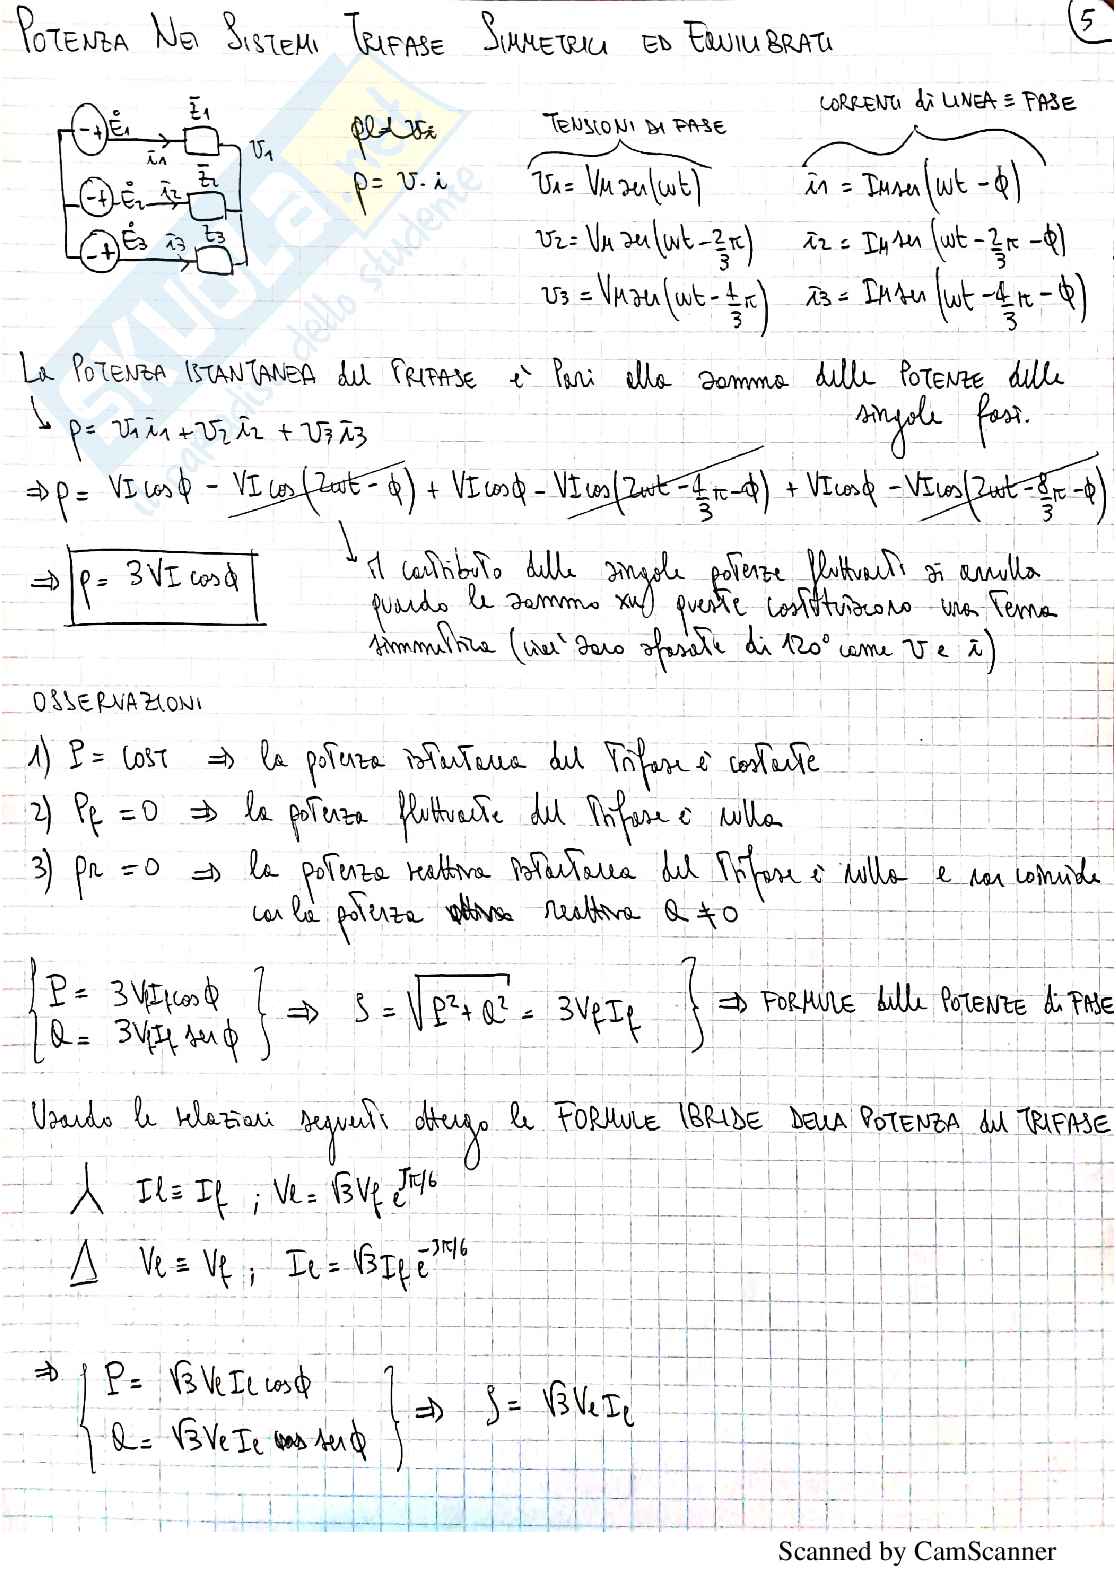 POTENZA NEI SISTEMI TRIFASE SIMMETRICI ED EQUILIBRATI
5
Ė1 i1 Z̄1 v1
Ė2 i2 Z̄2
Ė3 i3 Z3
p = v · i
TENSIONI DI FASE
CORRENTI di LINEA ≡ FASE
v1 = VM sen(ωt)
i1 = IM sen(ωt - ϕ)
v2 = VM sen(ωt - 2/3 π)
i2 = IM sen(ωt - 2/3 π - ϕ)
v3 = VM sen(ωt - 4/3 π)
i3 = IM sen(ωt - 4/3 π - ϕ)
La POTENZA ISTANTANEA del TRIFASE è Pari alla somma delle POTENZE delle
singole fasi.
↳ p = v1 i1 + v2 i2 + v3 i3
⇒ p = VI cosϕ - VI cos(2ωt - ϕ) + VI cosϕ - VI cos(2ωt - 4/3 π - ϕ) + VI cosϕ - VI cos(2ωt - 8/3 π - ϕ)
⇒ p = 3VI cosϕ
↳ il contributo delle singole potenze fluttuanti si annulla
quando le sommo xké queste costituiscono una Terna
simmetrica (cioè sono sfasate di 120° come v e i)
OSSERVAZIONI
1) P = COST ⇒ la potenza istantanea del Trifase è costante
2) Pf = 0 ⇒ la potenza fluttuante del Trifase è nulla
3) pr = 0 ⇒ la potenza reattiva istantanea del Trifase è nulla e non coincide
con la potenza reattiva Q ≠ 0
{ P = 3VfIf cosϕ
Q = 3VfIf senϕ } ⇒ S = √P² + Q² = 3VfIf } ⇒ FORMULE delle POTENZE di FASE
Usando le relazioni seguenti ottengo le FORMULE IBRIDE DELLA POTENZA del TRIFASE
⅄ Il ≡ If ; Vl = √3 Vf e^Jπ/6
Δ Vl ≡ Vf ; Il = √3 If e^-Jπ/6
⇒ { P = √3 Vl Il cosϕ
Q = √3 Vl Il senϕ } ⇒ S = √3 Vl Il
SKUOLA.net
il paradiso dello studente
Scanned by CamScanner